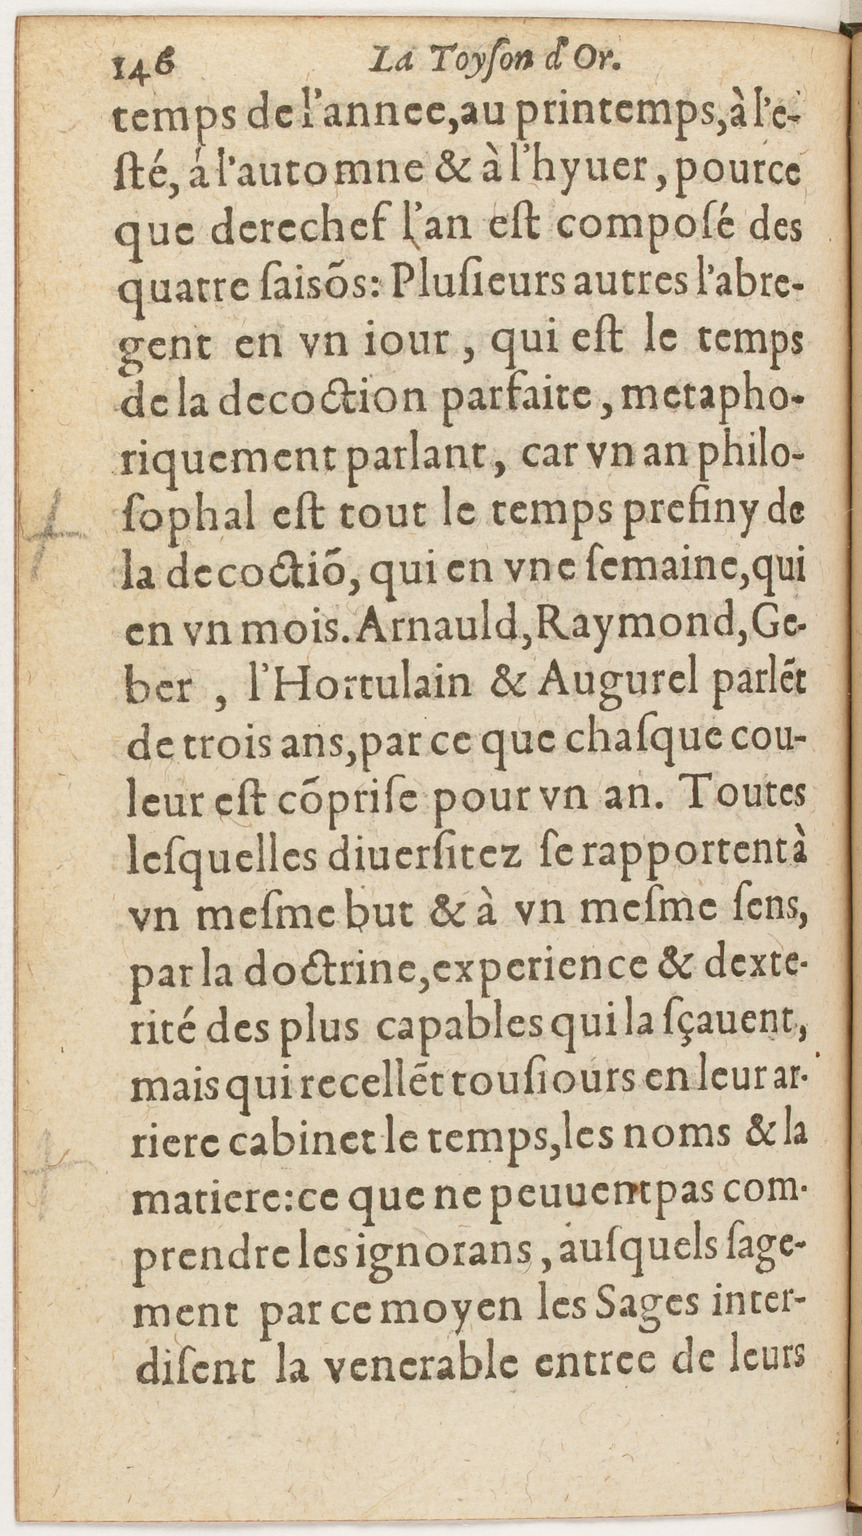 146 La Toyſon d'Or.
temps de l'annee,au printemps,à l'e-
ſté, á l'automne & à l'hyuer, pource
que derechef l'an eſt compoſé des
quatre ſaisõs: Pluſieurs autres l'abre-
gent en vn iour, qui eſt le temps
de la decoction parfaite, metapho-
riquement parlant, car vn an philo-
ſophal eſt tout le temps prefiny de
la decoctiõ, qui en vne ſemaine,qui
en vn mois. Arnauld,Raymond,Ge-
ber, l'Hortulain & Augurel parlẽt
de trois ans,par ce que chaſque cou-
leur eſt cõpriſe pour vn an. Toutes
leſquelles diuerſitez ſe rapportent à
vn meſme but & à vn meſme ſens,
par la doctrine,experience & dexte-
rité des plus capables qui la ſçauent,
mais qui recellẽt touſiours en leur ar-
riere cabinet le temps,les noms & la
matiere:ce que ne peuuent pas com-
prendre les ignorans, auſquels ſage-
ment par ce moyen les Sages inter-
diſent la venerable entree de leurs